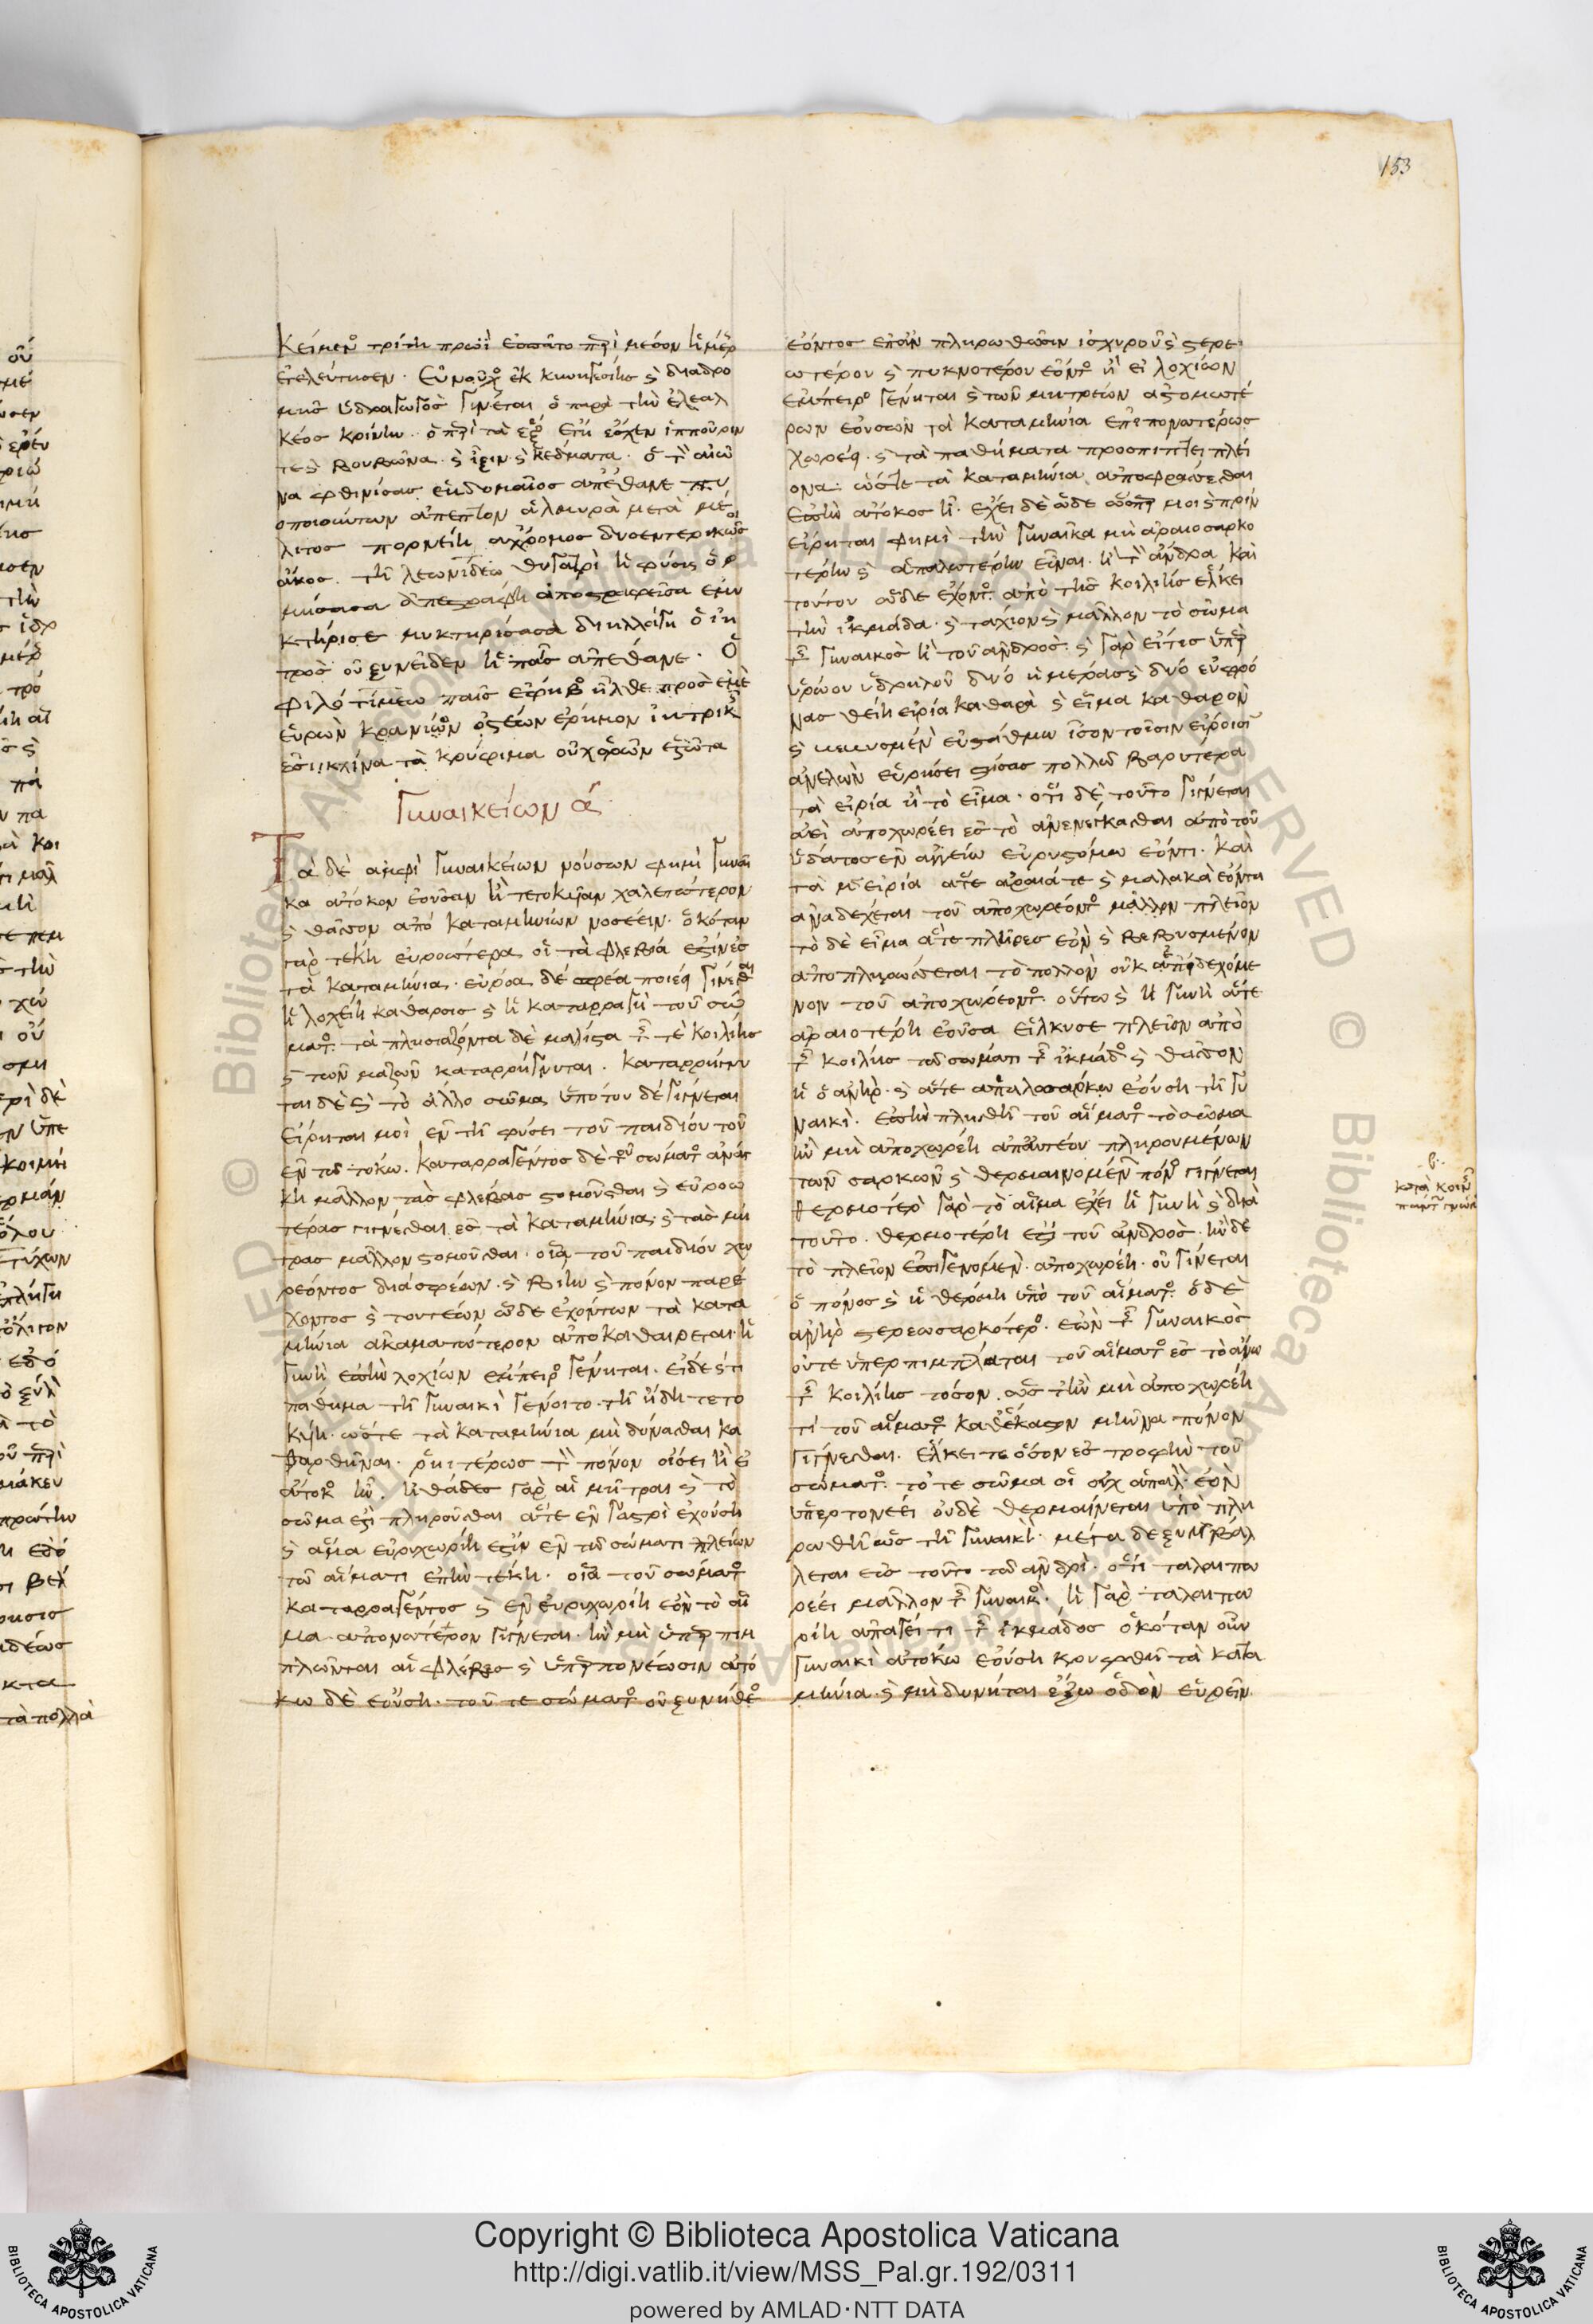 153
κείμενος τρίτη πρωῒ ἐσπᾶτο περὶ μέσον ἡμέρης
ἐτελεύτησεν. Εὐνοῦχος ἐκ κυνηγεσίης ϛ διαδρο
μῆς ὑδραγωγὸς γίνεται ὁ παρὰ τὴν ἐλεαλ
κέος κρήνην. ὁ περὶ τὰ ἓξ ἔτη ἔσχεν ἱππουρίν
τε ϛ βουβῶνα ϛ ἶξιν ϛ κέδματα. ὁ τὸν αἰῶ
να φθινήσας ἑβδομαῖος ἀπέθανε πυ
οποιούντων ἀπεπτον ἁλμυρὰ μετὰ μέ
λιτος
τῆ λεωνίδεω θυγατρὶ ἡ φύσις ὁρ
μήσασα ἀπεστράφη ἀποστραφεῖσα ἐμυ
κτήρισε μυκτηρίσασα διηλλάγη ὁ ἰη
τρὸς οὐ ξυνεῖδεν ἡ παῖς ἀπέθανε. Ὁ
φιλοτίμεω παῖς ἔφηβος ἦλθε πρὸς ἐμὲ
Γυναικείων α
Τὰ δὲ ἀμφὶ γυναικείων νούσων φημὶ γυναῖ
κα ἄτοκον ἐοῦσαν ἢ τετοκυῖαν χαλεπώτερον
ϛ θᾶσσον ἀπὸ καταμηνίων νοσέειν. ὁκόταν
γὰρ τέκη εὐροώτερα οἱ τὰ φλεβία ἐστὶν ἐς
τὰ καταμήνια. εὔροα δέ σφεα ποιέει γίνεσθαι
ἡ λοχείη κάθαρσις ϛ ἡ καταρραγὴ τοῦ σώ
ματος. τὰ πλησιάζοντα δὲ μάλιστα τῆς τε κοιλίης
ϛ τῶν μαζῶν καταρρήγνυται. καταρρήγνυ
ται δὲ ϛ τὸ ἄλλο σῶμα ὑπότου δὲ γίγνεται
εἴρηταί μοι ἐν τῆ φύσει τοῦ παιδίου τοῦ
ἐν τῶ τόκω. καταρραγέντος δὲ τοῦ σώματος ἀνάγ
κη μᾶλλον τὰς φλέβας στομοῦσθαι ϛ εὐροω
τέρας γιγνέσθαι ἐς τὰ καταμήνια ϛ τὰς μή
τρας μᾶλλον στομοῦσθαι. οἷα τοῦ παιδίου χω
ρέοντος διὰ σφέων. ϛ βίην ϛ πόνον παρέ
χοντος ϛ τουτέων ὧδε ἐχόντων τὰ κατα
μήνια ἀκαματώτερον ἀποκαθαίρεται ἡ
γυνὴ ἐπὴν λοχίων ἔμπειρος γένηται. εἰ δέ ϛ τι
πάθημα τῆ γυναικὶ γένοιτο τῆ ἤδη τετο
κυίη. ὥστε τὰ καταμήνια μὴ δύνασθαι κα
θαρθῆναι. ῥηιτέρως τὸν πόνον οἴσει ἢ εἰ
ἄτοκος ἦν. ἠθάδες γὰρ αἱ μῆτραι ϛ τὸ
σῶμα ἐστὶ πληροῦσθαι ἅτε ἐν γαστρὶ ἐχούση
ϛ ἅμα εὐρυχωρίη ἐστὶν ἐν τῶ σώματι πλείων
τῶ αἵματι ἐπὴν τέκη. οἷα τοῦ σώματος
καταρραγέντος ϛ ἐν εὐρυχωρίη ἐὸν τὸ αἷ
μα ἀπονώτερον γίγνεται. ἢν μὴ ὑπερπιμ
πλῶνται αἱ φλέβες ϛ ὑπερπονέωσιν ἀτό
κω δὲ ἐούση. τοῦ τε σώματος οὐ ξυνήθεος
ἐόντος ἐπὰν πληρωθῶσιν ἰσχυροῦ ϛ στερε
ωτέρου ϛ πυκνοτέρου ἐόντος ἢ εἰ λοχίων
ἔμπειρος γένηται ϛ τῶν μητρέων ἀστομωτέ
ρων ἐουσῶν τὰ καταμήνια ἐπιπονωτέρως
χωρέει. ϛ τὰ παθήματα προσπίπτει πλεί
ονα. ὥστε τὰ καταμήνια ἀποφράσσεσθαι
ἐπὴν ἄτοκος ἦ. ἔχει δὲ ὧδε ὥσπερ μοι ϛ πρὶν
εἴρηται φημὶ τὴν γυναῖκα μὴ ἀραιοσαρκο
τέρην ϛ ἁπαλωτέρην εἶναι. ἢ τὸν ἄνδρα καὶ
τούτου ὧδε ἔχοντος ἀπὸ τῆς κοιλίης ἕλκει
τὴν ἰκμάδα. ϛ τάχιον ϛ μᾶλλον τὸ σῶμα
τῆς γυναικὸς ἢ τοῦ ἀνδρός. ϛ γὰρ εἴ τις ὑπὲρ
ὑρώου ὑδρηλοῦ δύο ἡμέρας ϛ δύο εὐφρό
νας θείη εἰρία καθαρὰ ϛ εἷμα καθαρὸν
ϛ νενυσμένον εὐστάθμω ἴσον τοῖσιν εἰρίοισι
ἀνελὼν εὑρήσει στήσας πολλῶ βαρύτερα
τὰ εἰρία ἢ τὸ εἷμα. ὅτι δὲ τοῦτο γίγνεται
αἰεὶ ἀποχωρέει ἐς τὸ ἀνενεγκάσθαι ἀπὸ τοῦ
ὕδατος ἐν ἀγγείω εὐρυστόμω ἐόντι. καὶ
τὰ μὲν εἰρία ἅτε ἀραιά τε ϛ μαλακὰ ἐόντα
ἀναδέχεται τοῦ ἀποχωρέοντος μᾶλλον πλεῖον
τὸ δὲ εἷμα ἅτε πλῆρες ἐὸν ϛ βεβυσμένον
ἀποπληρώσεται τὸ πολλὸν οὐκ ἐπιδεχόμε
νον τοῦ ἀποχωρέοντος. οὕτω ϛ ἡ γυνὴ ἅτε
ἀραιοτέρη ἐοῦσα εἵλκυσε πλεῖον ἀπὸ
τῆς κοιλίης τῶ σώματι τῆς ἰκμάδος ϛ θᾶσσον
ἢ ὁ ἀνήρ. ϛ ἅτε ἁπαλοσάρκω ἐούση τῆ γυ
ναικί. ἐπὴν πλησθῆ τοῦ αἵματος τὸ σῶμα
ἢν μὴ ἀποχωρέη ἀπ αὐτέου πληρουμένων
τῶν σαρκῶν ϛ θερμαινομένων πόνος γίγνεται
θερμότερον γὰρ τὸ αἷμα ἔχει ἡ γυνὴ ϛ διὰ
τοῦτο. θερμοτέρη ἐστὶ τοῦ ἀνδρός. ἢν δὲ
τὸ πλεῖον ἐπιγενόμενον ἀποχωρέη. οὐ γίνεται
ὁ πόνος ϛ ἡ θέρμη ὑπὸ τοῦ αἵματος. ὁ δὲ
ἀνὴρ στερεωσαρκότερος ἐὼν τῆς γυναικὸς
οὔτε ὑπερπίμπλαται τοῦ αἵματος ἐς τὸ ἄνω
τῆς κοιλίης τόσον ὡς τ ἢν μὴ ἀποχωρέη
τι τοῦ αἵματος καθ ἕκαστον μῆνα πόνον
γίγνεσθαι. ἕλκει τε ὅσον ἐς τροφὴν τοῦ
σώματος. τό τε σῶμα οἱ οὐχ ἁπαλὸν ἐὸν
ὑπερτονέει οὐδὲ θερμαίνεται ὑπὸ πλη
ρωθῆ ὡς τῆ γυναικί. μέγα δὲ ξυμβάλ
λεται εἰς τοῦτο τῶ ἀνδρί. ὅτι ταλαιπω
ρέει μᾶλλον τῆς γυναικός. ἡ γὰρ ταλαιπω
ρίη ἀπάγει τι τῆς ἰκμάδος ὁκόταν οὖν
γυναικὶ ἀτόκω ἐούση κρυφθῆ τὰ κατα
μήνια ϛ μὴ δύνηται ἔξω ὁδὸν εὑρεῖν.
Copyright © Biblioteca Apostolica Vaticana
http://digi.vatlib.it/view/MSS_Pal.gr.192/0311
powered by AMLAD·NTT DATA
BIBLIOTECA APOSTOLICA VATICANA
BIBLIOTECA APOSTOLICA VATICANA